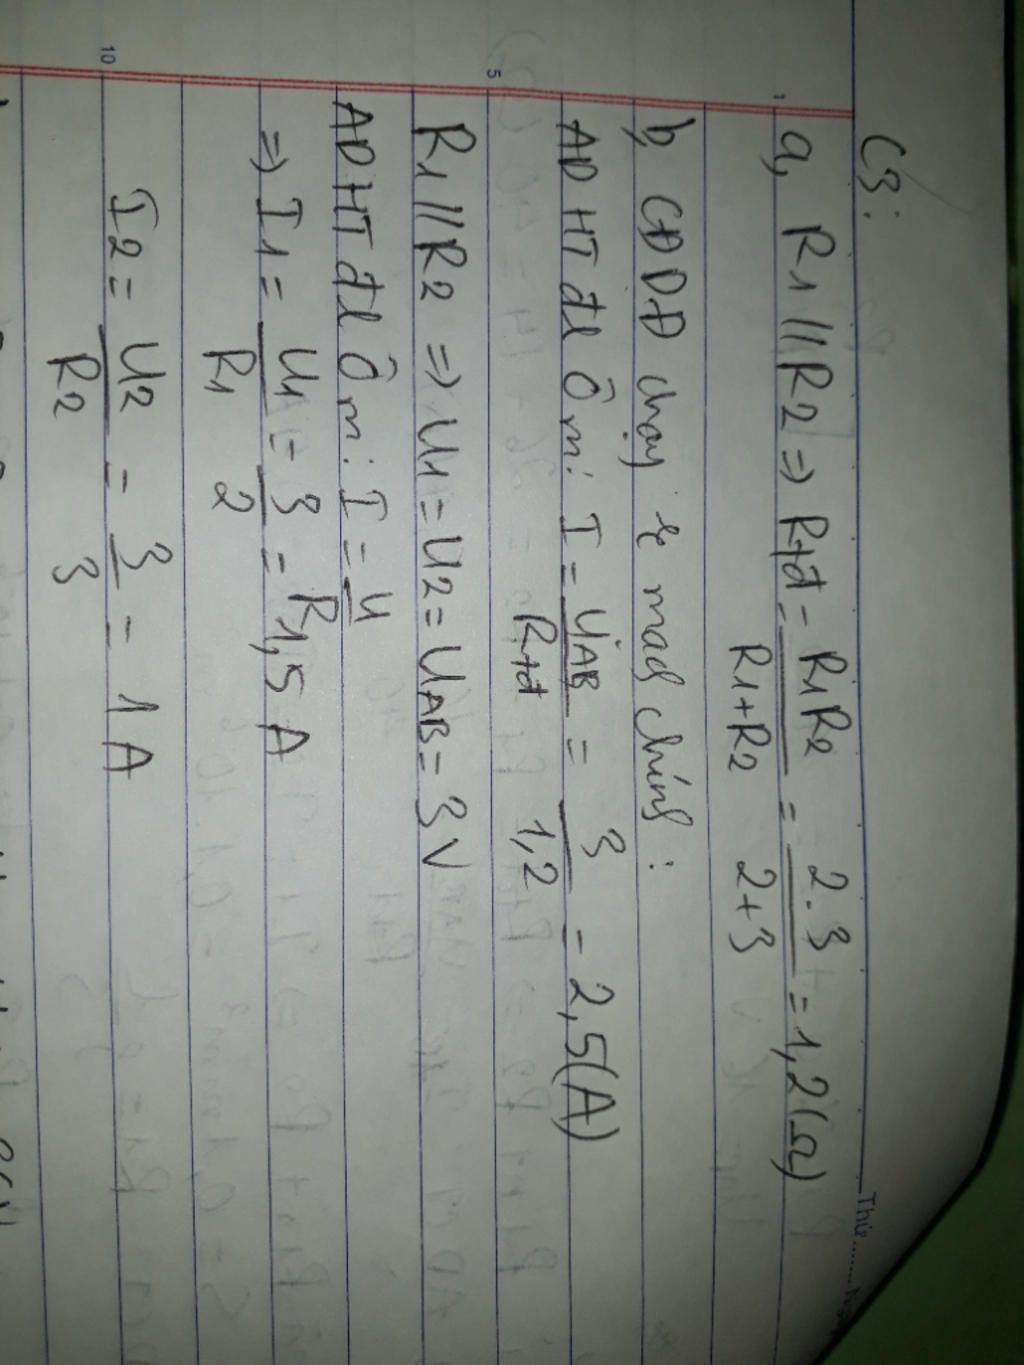 Thứ.........
C3:
a, R1//R2 => Rtđ = R1R2 / R1+R2 = 2.3 / 2+3 = 1,2(Ω)
b, CĐDĐ chạy mach chính :
AD HT đl Ôm: I = UAB / Rtđ = 3 / 1,2 = 2,5(A)
R1//R2 => U1 = U2 = UAB = 3V
AD HT đl Ôm: I = U / R
=> I1 = U1 / R1 = 3 / 2 = 1,5 A
I2 = U2 / R2 = 3 / 3 = 1A
1
5
10